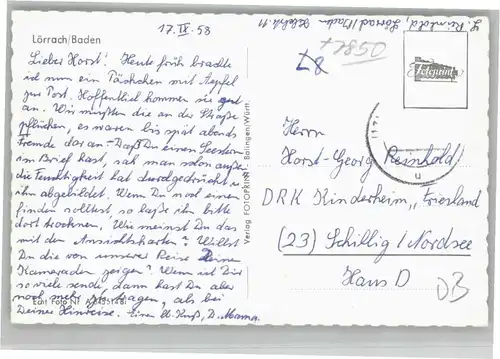 17. IX. 53
Lörrach/Baden
Lieber Horst! Heute früh brachte
ich nun ein Päckchen mit Aepfel
zur Post. Hoffentlich kommen sie gut
an. Wir mußten die an der Straße
pflücken, es waren bis spät abends
Fremde daran - Daß Du einen Seestern
im Brief hast, sah man schon außen
die Feuchtigkeit hat durchgedrückt u.
ihn abgebildet. Wenn Du noch einen
finden solltest, so laße ihn bitte
dort trocknen. Wie meinst Du das
mit den Ansichtskarten? Willst
Du die von unserer Reise Deinen
Kameraden zeigen? Wenn ich Dir
so viele sende, dann hast Du aber
noch mehr zu tragen, als bei
Deiner Hinreise. Einen Kuß, D. Mama.
Echt Foto Nr.
Verlag FOTOPRINT Balingen/Württ.
Lörrach/Baden
Fotoprint
Herrn
Horst-Georg Reinhold
DRK Kinderheim „Frieesland
(23) Schillig / Nordsee
Haus D
DB